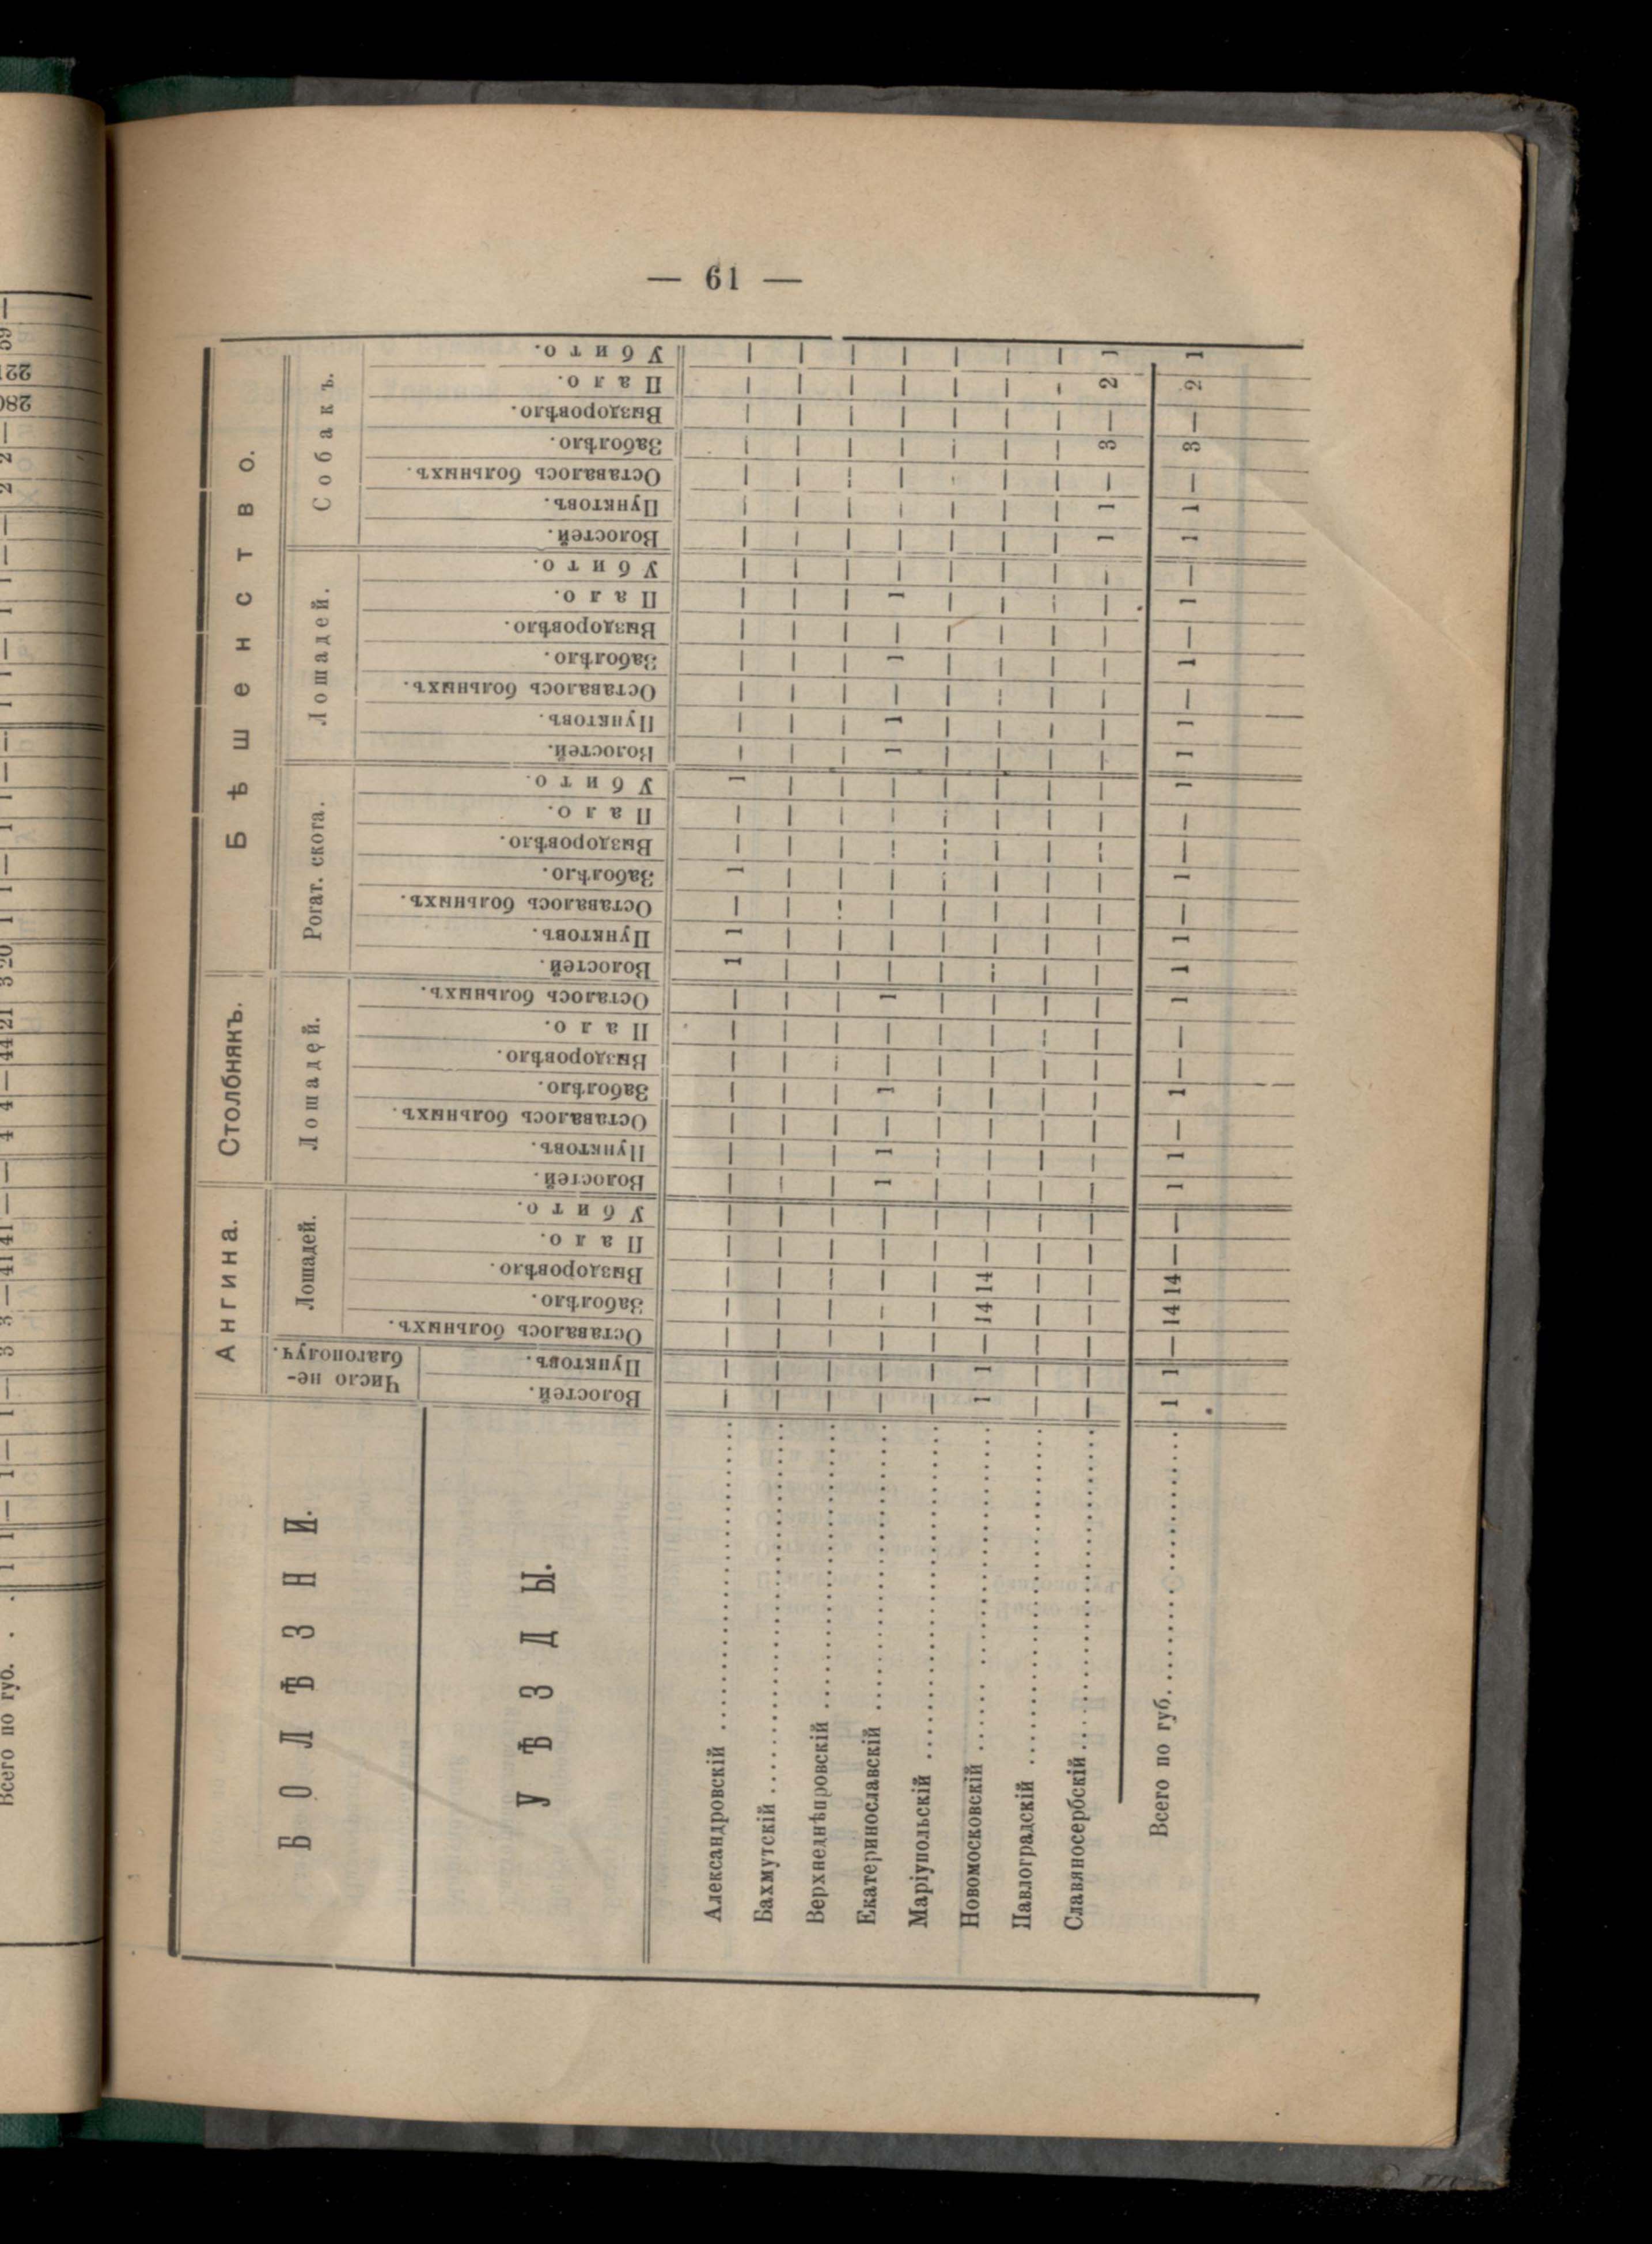 — 61 —
БОЛѢЗНИ.
Ангина.
Столбнякъ.
Бѣшенство.
Число не-
благополуч.
Лошадей.
Лошадей.
Рогат. скота.
Лошадей.
Собакъ.
УѢЗДЫ.
Волостей.
Пунктовъ.
Оставалось больныхъ.
Заболѣло.
Выздоровѣло.
Пало.
Убито.
Волостей.
Пунктовъ.
Оставалось больныхъ.
Заболѣло.
Выздоровѣло.
Пало.
Осталось больныхъ.
Волостей.
Пунктовъ.
Оставалось больныхъ.
Заболѣло.
Выздоровѣло.
Пало.
Убито.
Волостей.
Пунктовъ.
Оставалось больныхъ.
Заболѣло.
Выздоровѣло.
Пало.
Убито.
Волостей.
Пунктовъ.
Оставалось больныхъ.
Заболѣло.
Выздоровѣло.
Пало.
Убито.
Александровскій — — — — — — — — — — — — — — 1 1 — 1 — — 1 — — — — — — — — — — — — — —
Бахмутскій — — — — — — — — — — — — — — — — — — — — — — — — — — — — — — — — — — —
Верхнеднѣпровскій — — — — — — — — — — — — — — — — — — — — — — — — — — — — — — — — — — —
Екатеринославскій — — — — — — — 1 1 — 1 — — 1 — — — — — — — 1 1 — 1 — 1 — — — — — — — —
Маріупольскій — — — — — — — — — — — — — — — — — — — — — — — — — — — — — — — — — — —
Новомосковскій 1 1 — 14 14 — — — — — — — — — — — — — — — — — — — — — — — — — — — — — —
Павлоградскій — — — — — — — — — — — — — — — — — — — — — — — — — — — — — — — — — — —
Славяносербскій — — — — — — — — — — — — — — — — — — — — — — — — — — — — 1 1 — 3 — 2 1
Всего по губ. 1 1 — 14 14 — — 1 1 — 1 — — 1 1 1 — 1 — — 1 1 1 — 1 — 1 — 1 1 — 3 — 2 1
Всего по губ.